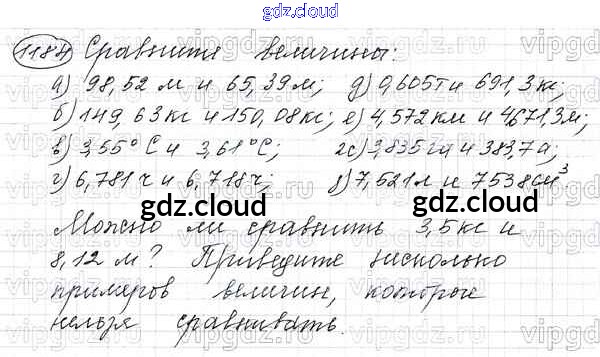 gdz.cloud
1184 Сравните величины:
а) 98,52 м и 65,39 м; д) 0,605т и 691,3 кг;
б) 149,63кг и 150,08кг; е) 4,572 км и 4671,3м;
в) 3,55°С и 3,61°С; ж) 3,835га и 383,7а;
г) 6,781ч и 6,718ч; з) 7,521л и 7538см³.
gdz.cloud gdz.cloud
Можно ли сравнить 3,5кг и
8,12 м? Приведите несколько
примеров величин, которые
нельзя сравнивать.
gdz.cloud